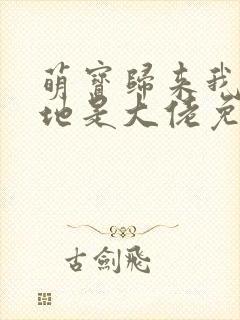 萌寶歸来我
地是大佬免
古劍飛